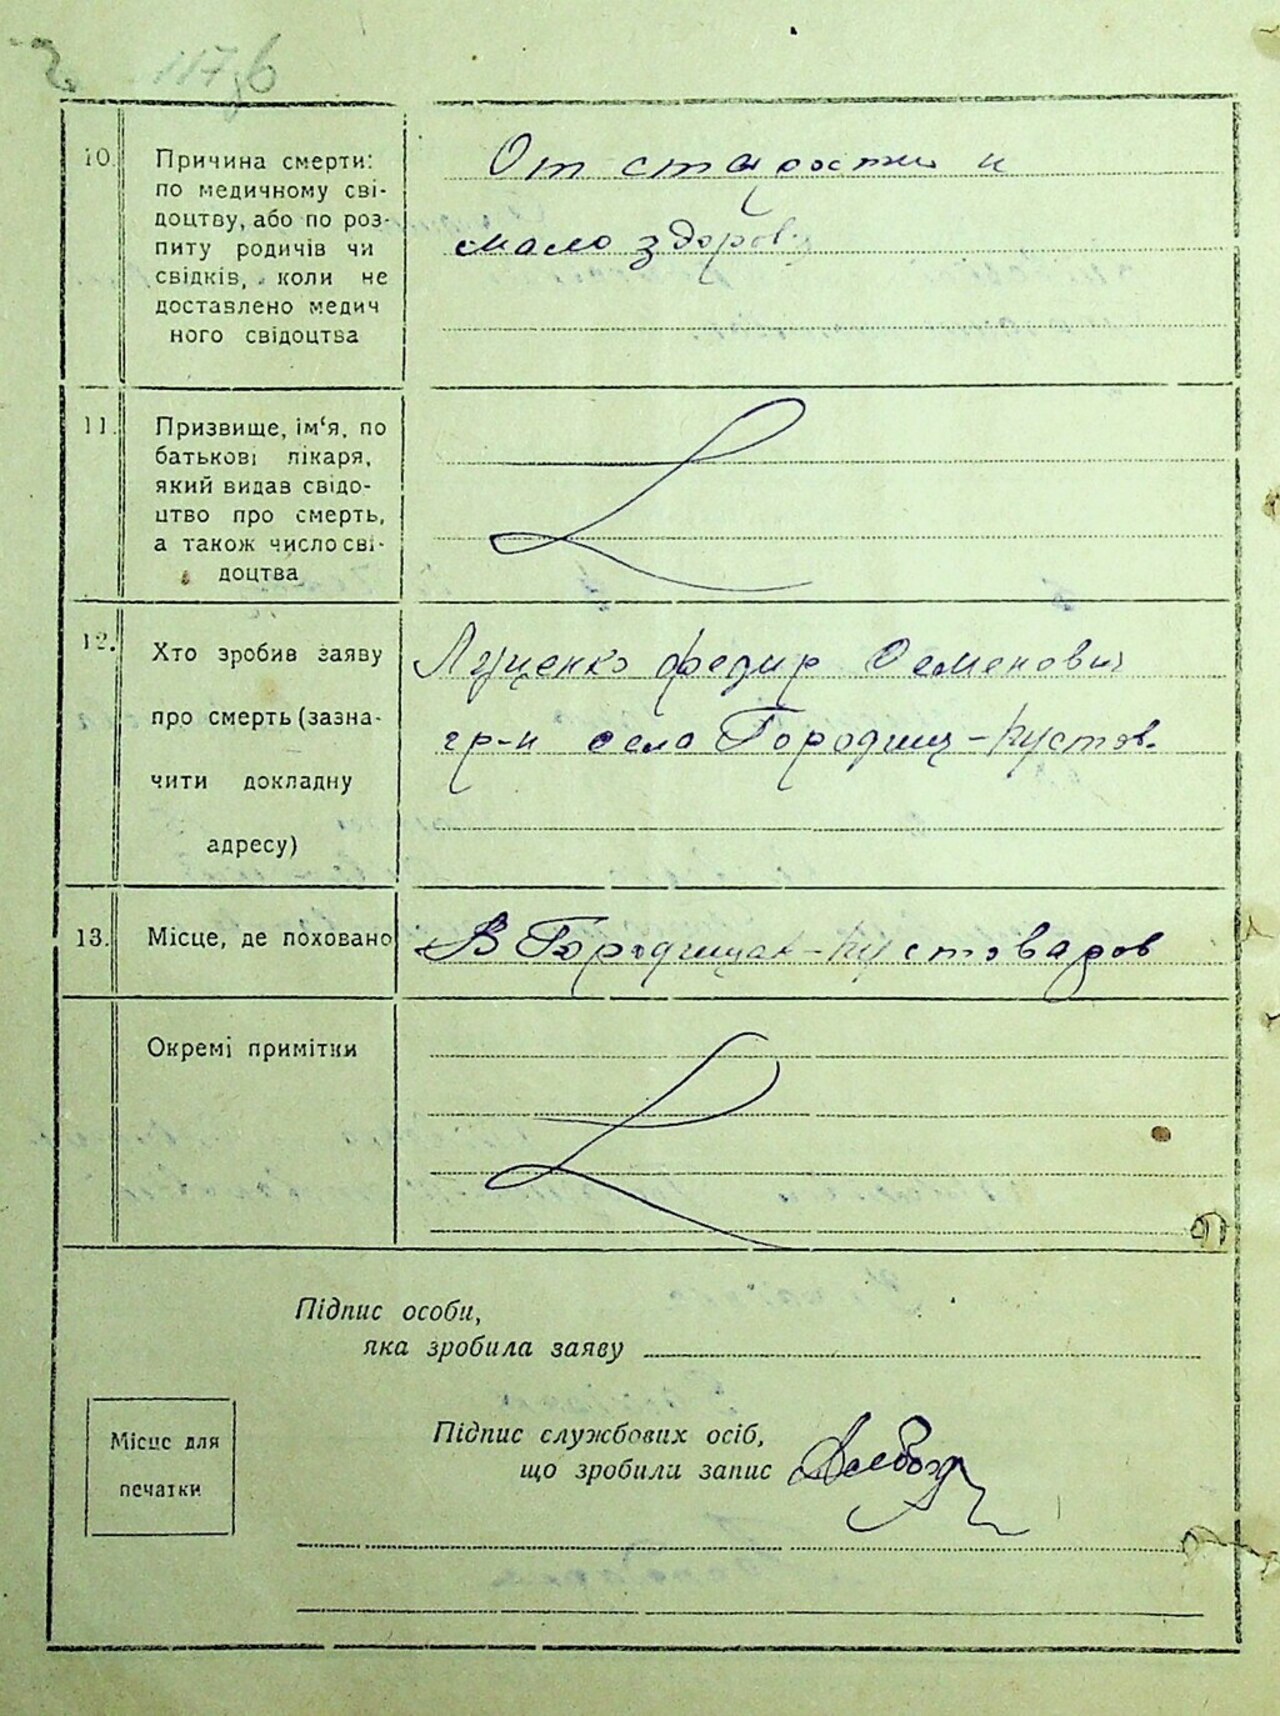 117б
10. Причина смерти:
по медичному сві-
доцтву, або по роз-
питу родичів чи
свідків, коли не
доставлено медич
ного свідоцтва
От старости и
мало здоров
11. Призвище, ім‘я, по
батькові лікаря,
який видав свідо-
цтво про смерть,
а також число сві-
доцтва
12. Хто зробив заяву
про смерть (зазна-
чити докладну
адресу)
Луценко Федир Семенович
гр-н села Городищ-Пустов.
13. Місце, де поховано
В Городищах-Пустоваров
Окремі примітки
Підпис особи,
яка зробила заяву
Місце для
печатки
Підпис службових осіб,
що зробили запис